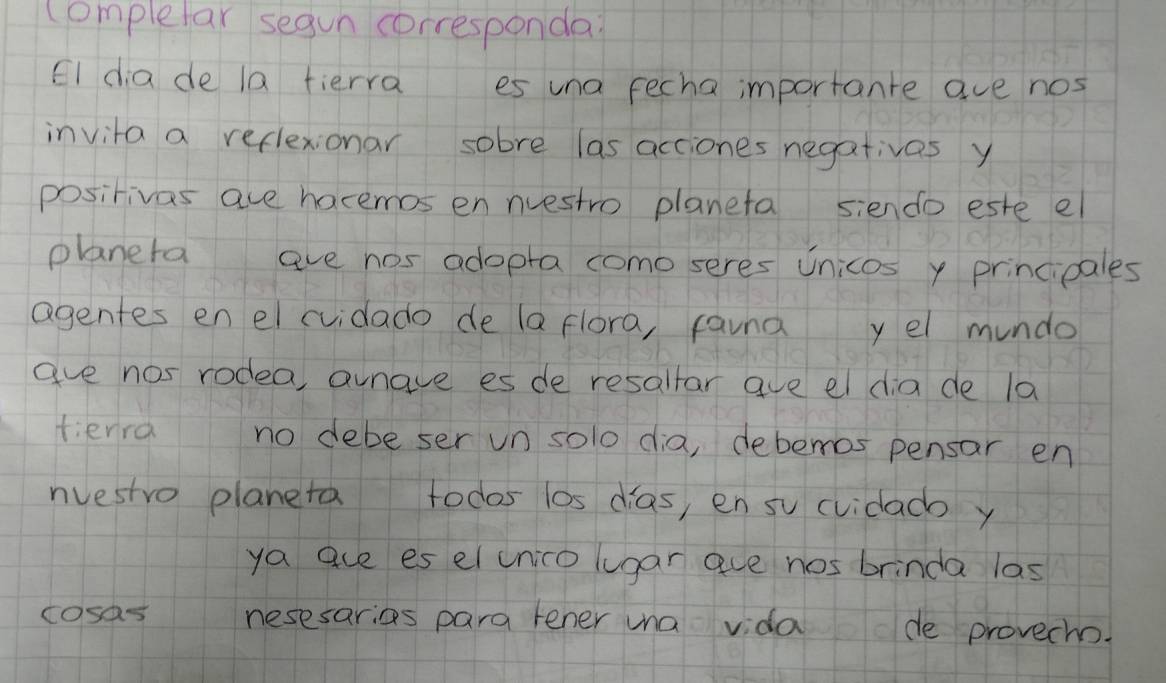 Completar segun corresponda:
El dia de la tierra es una fecha importante que nos
invita a reflexionar sobre las acciones negativas y
positivas que hacemos en nuestro planeta siendo este el
planeta que nos adopta como seres únicos y principales
agentes en el cuidado de la flora, fauna y el mundo
que nos rodea, aunque es de resaltar que el dia de la
tierra no debe ser un solo dia, debemos pensar en
nuestro planeta todos los días, en su cuidado y
ya que es el unico lugar que nos brinda las
cosas nesesarias para tener una vida de provecho.